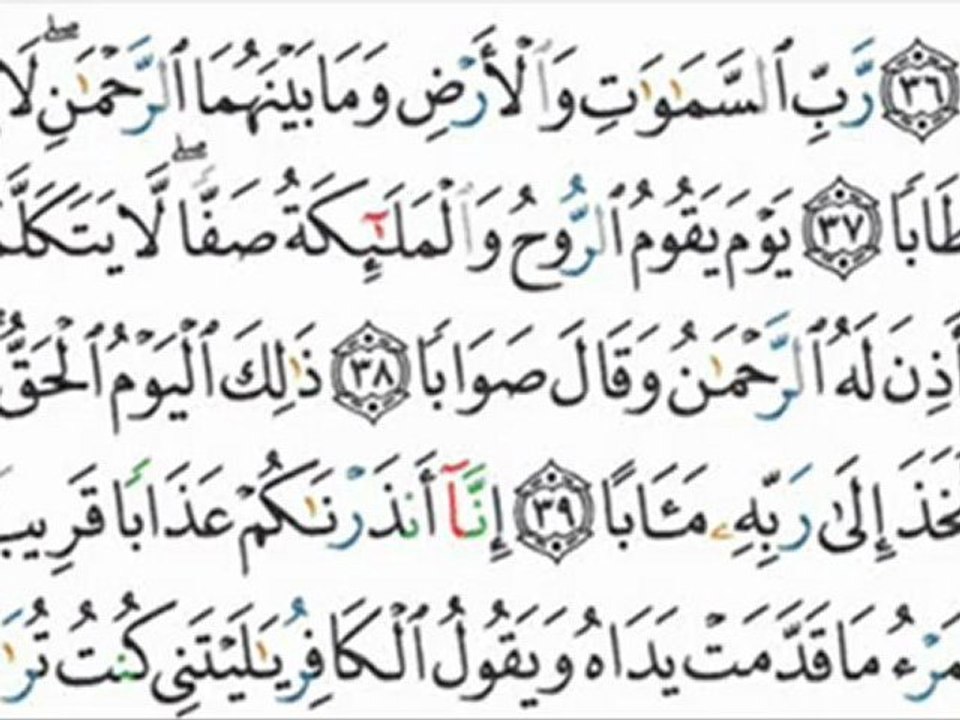 ﴿٣٦﴾ رَّبِّ ٱلسَّمَٰوَٰتِ وَٱلْأَرْضِ وَمَا بَيْنَهُمَا ٱلرَّحْمَٰنِۖ لَا
طَابًا ﴿٣٧﴾ يَوْمَ يَقُومُ ٱلرُّوحُ وَٱلْمَلَٰٓئِكَةُ صَفًّاۖ لَّا يَتَكَلَّمُ
أَذِنَ لَهُ ٱلرَّحْمَٰنُ وَقَالَ صَوَابًا ﴿٣٨﴾ ذَٰلِكَ ٱلْيَوْمُ ٱلْحَقُّ
تَّخَذَ إِلَىٰ رَبِّهِۦ مَـَٔابًا ﴿٣٩﴾ إِنَّآ أَنذَرْنَٰكُمْ عَذَابًا قَرِيبًا
مَرْءُ مَا قَدَّمَتْ يَدَاهُ وَيَقُولُ ٱلْكَافِرُ يَٰلَيْتَنِى كُنتُ تُرَٰ